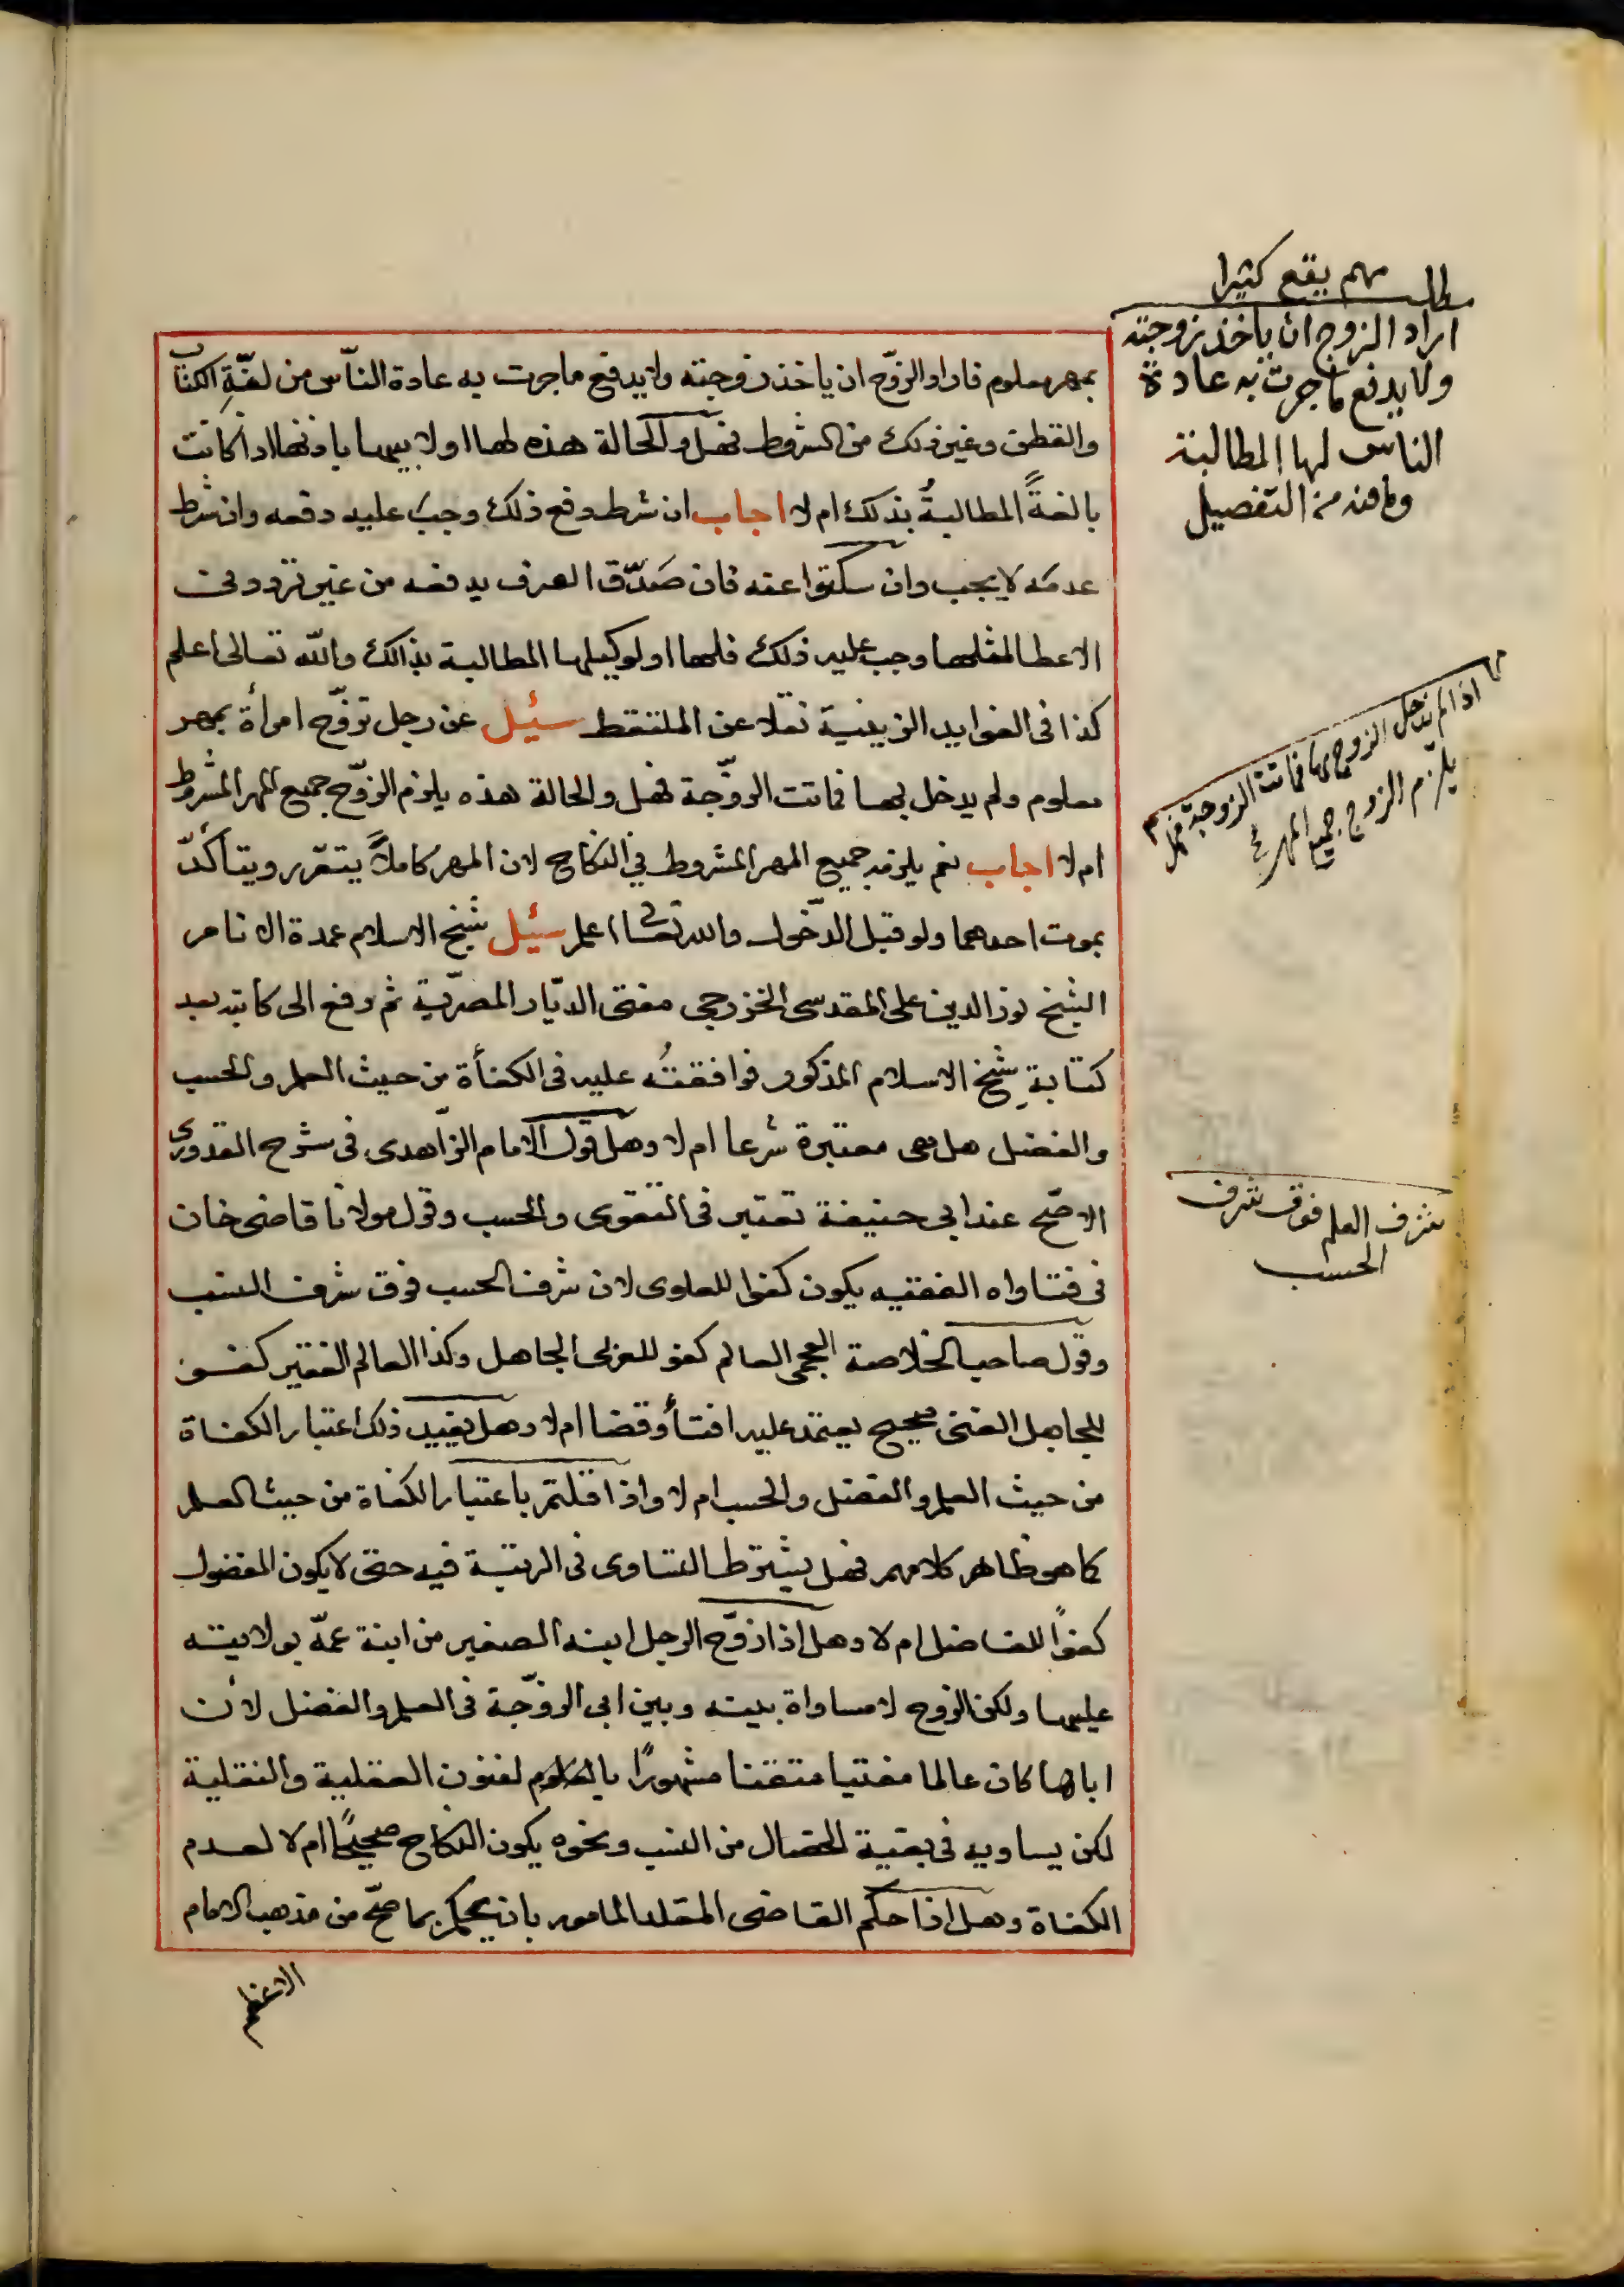 مهم يقع كثيرا
مطلب
اراد الزوج ان ياخذ زوجته
ولا يدفع ما جرت به عادة
الناس لها المطالبة
وما فيه من التفصيل
بمهر معلوم فاراد الزوّج ان ياخذ زوجته ولا يدفع ما جرت به عادة النّاس من لفّةِ الكتاب
والقطن وغير ذلك من الشروط فهل والحالة هذه لها او لابيها باذنها اذا كانت
بالغةً المطالبةُ بذلك ام لا اجاب ان شرط دفع ذلك وجب عليه دفعه وان شرط
عدمَه لا يجب وان سكتوا عنه فان صَدّق العرف يدفعه من غير تردد في
الاعطا لمثلها وجب عليه ذلك فلها او لوكيلها المطالبة بذالك والله تعالى اعلم
كذا فى الفوايد الزينية نقلا عن الملتقط سئيل عن رجل تزوّج امرأة بمهر
معلوم ولم يدخل بها فماتت الزوّجة فهل والحالة هذه يلزم الزوّج جميع المهر المشروط
ام لا اجاب نعم يلزمه جميع المهر المشروط في النكاح لان المهر كاملاً يتقرر ويتأكدّ
بموت احدهما ولو قبل الدّخول والله تعالى اعلم سئيل شيخ الاسلام عمدة الانام
الشيخ نور الدين على المقدسى الخزرجى مفتى الديّار المصرّية ثم رفع الى كاتبه بعد
كتابةِ شيخ الاسلام المذكور فوافقتُه عليه فى الكفأة من حيث العلم والحسب
والفضل هل هى معتبرة شرعا ام لا وهل قول الامام الزّاهدى فى شرح القدورى
الاصّح عند ابى حنيفة تعتبر فى التقوى والحسب وقول مولانا قاضى خان
فى فتاواه الفقيه يكون كفوا للعلوى لان شرف الحسب فوق شرف النسب
وقول صاحب الخلاصة العجمى العالم كفو للعربى الجاهل وكذا العالم الفقير كفو
للجاهل الغنى صحيح يعتمد عليه افتأ وقضا ام لا وهل يفيد ذلك اعتبار الكفاة
من حيث العلم والفضل والحسب ام لا واذا قلتم باعتبار الكفاة من حيث العلم
كما هو ظاهر كلامهم فهل يشترط التساوى فى الرتبة فيه حتى لا يكون المفضول
كفوًا للفاضل ام لا وهل اذا زوّج الرجل ابنه الصغير من ابنة عمّه بولايته
عليها ولكن الزوج لا مساواة بينه وبين ابى الزوّجة فى العلم والفضل لأن
اباها كان عالما مفتيا متقنا مشهورًا بالعلوم لفنون العقلية والنقلية
لكن يساويه فى بقية الخصال من النسب ونحوه يكون النكاح صحيحًا ام لا لعدم
الكفاة وهل اذا حكم القاضى المقلد المامور بان يحكم بما صحّ من مذهب الامام
الاعظم
اذا لم يدخل الزوج بها فماتت الزوجة فهل
يلزم الزوج جميع المهر
شرف العلم فوق شرف
الحسب